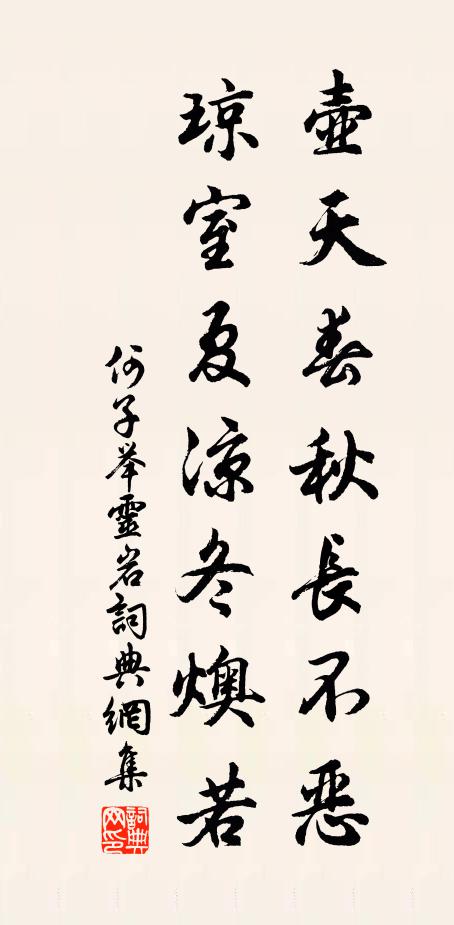 壺天春秋長不惡
琼室夏涼冬燠若
何子举靈岩詞典網集
詞典网印